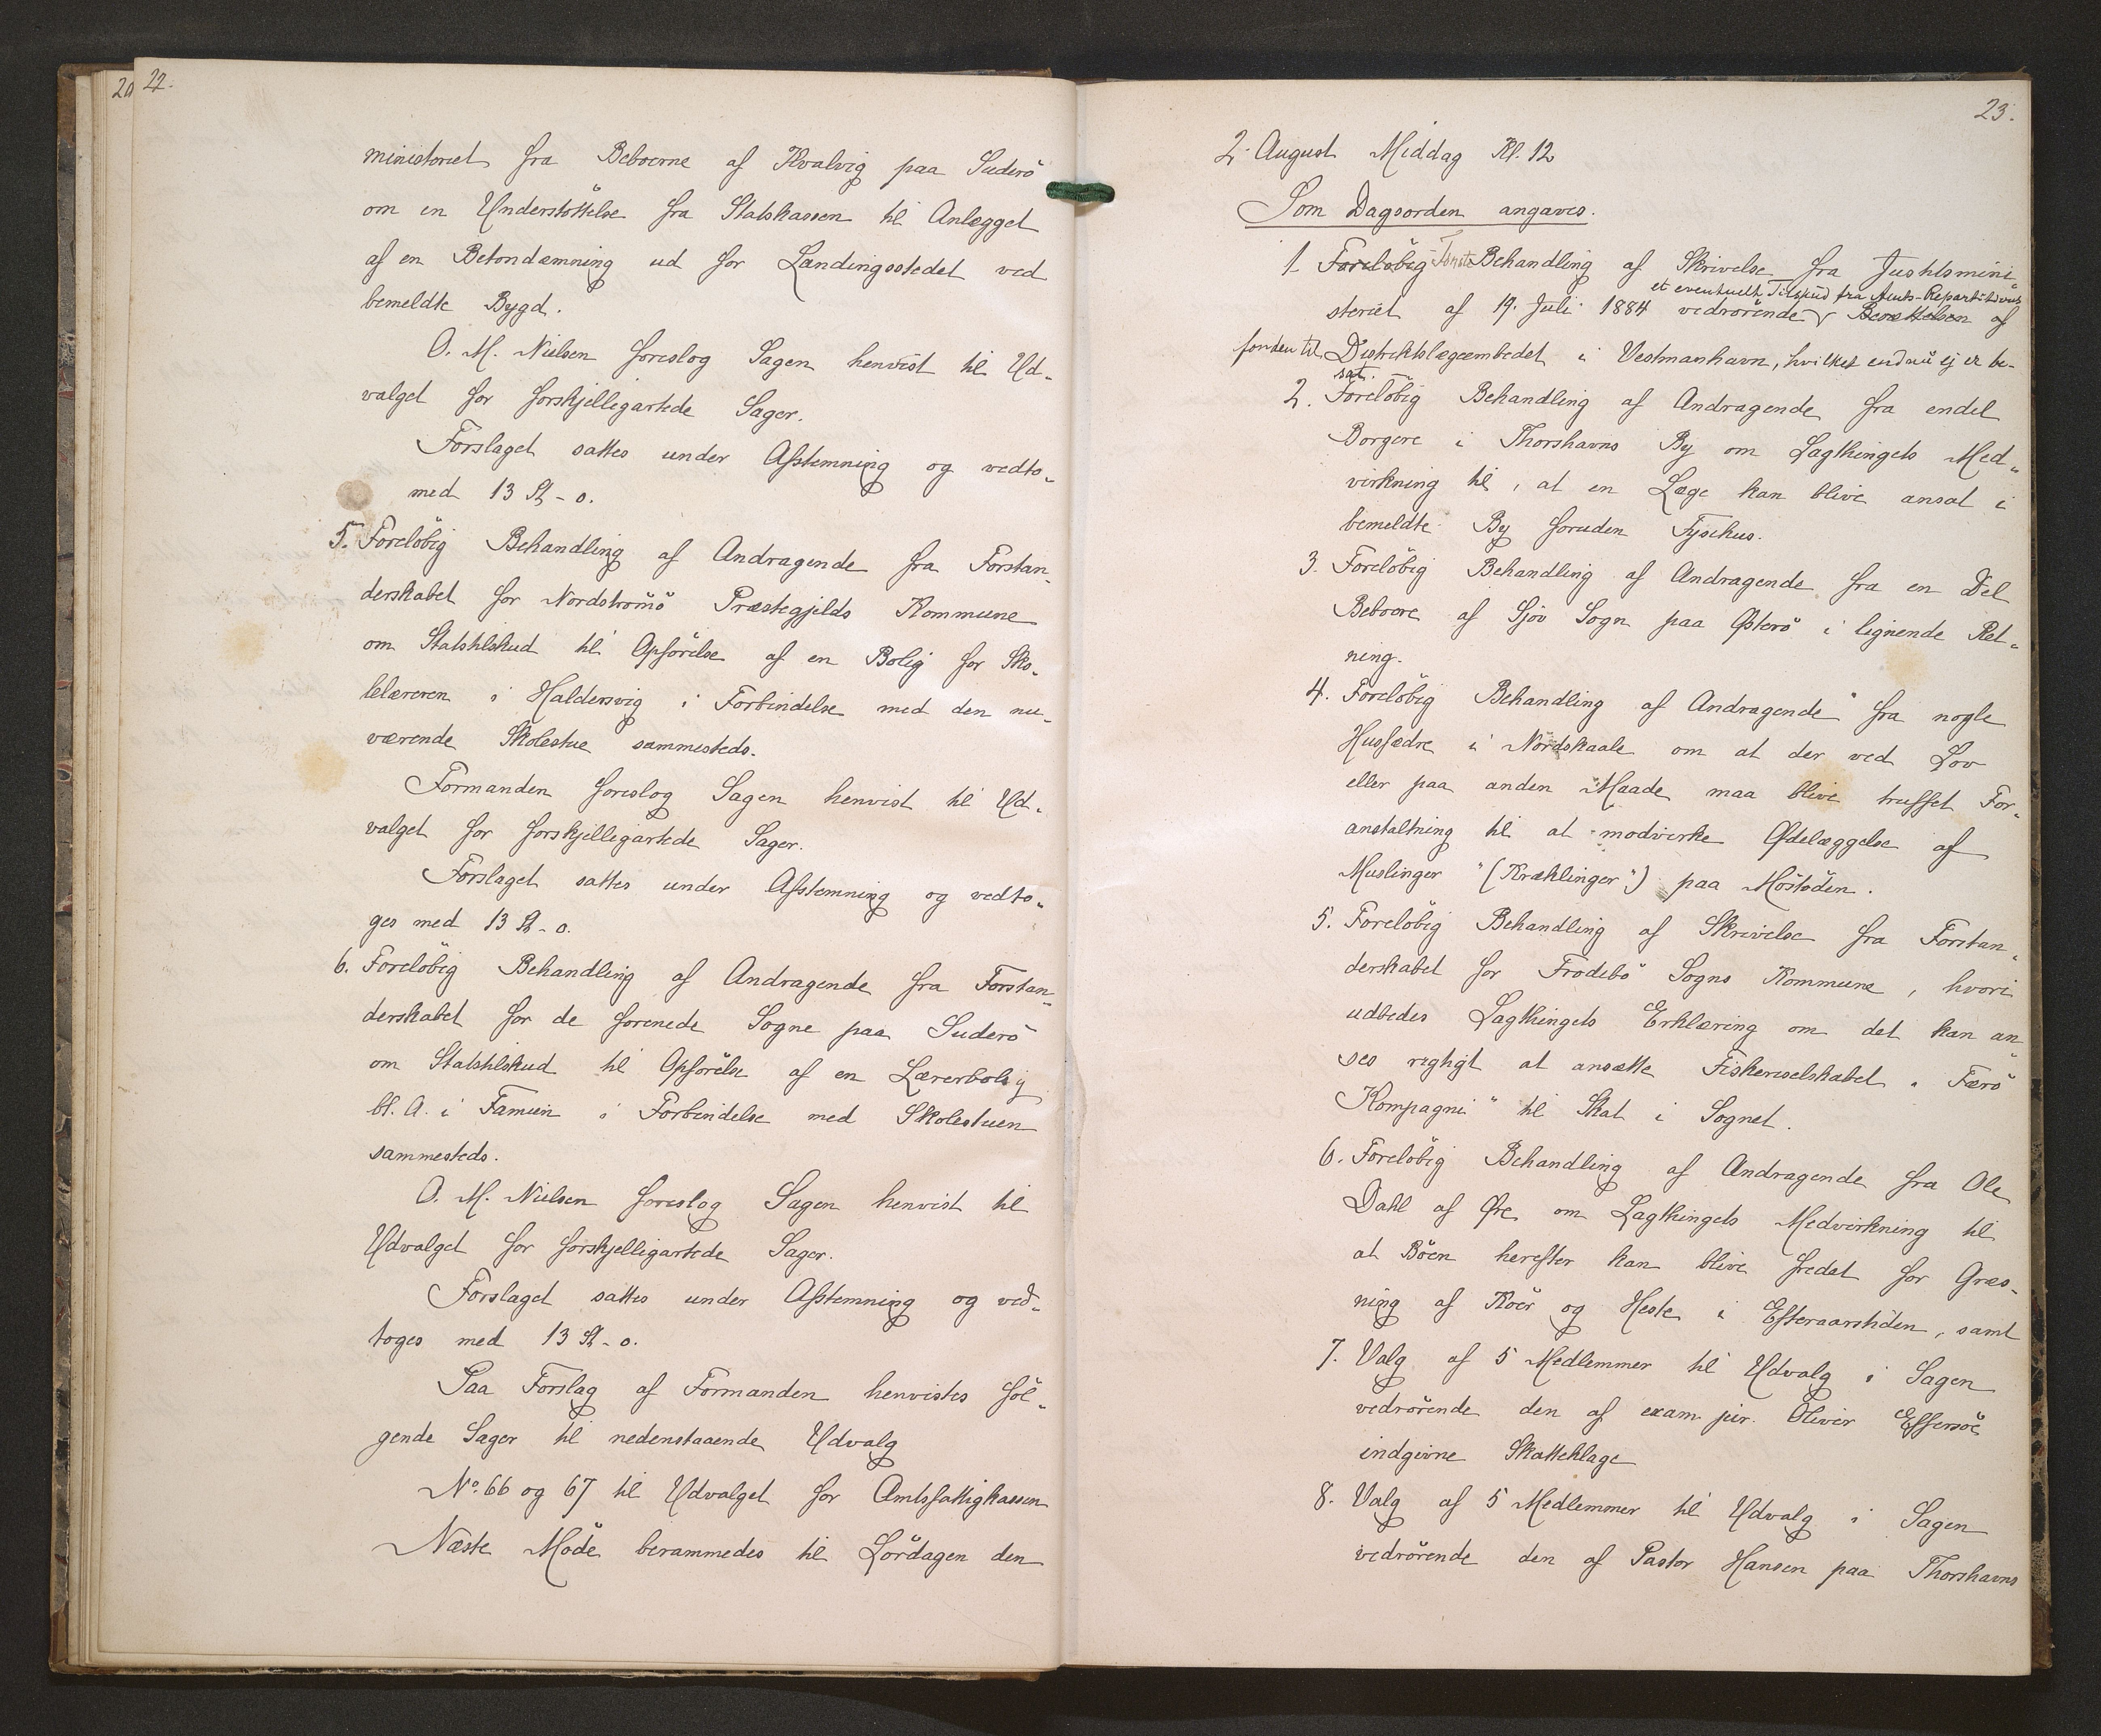 22.
ministeriet fra Beboerne af Kvalvig paa Suderö
om en Understöttelse fra Statskassen til Anlægget
af en Betondæmning ud for Landingsstedet ved
bemeldte Bygd.
O. M. Nielsen foreslog Sagen henvist til Ud-
valget for forskjelligartede Sager.
Forslaget sattes under Afstemning og vedto-
med 13 St - 0.
5. Foreløbig Behandling af Andragende fra Forstan-
derskabet for Nordstrømö Præstegjelds Kommune
om Statstilskud til Opförelse af en Bolig for Sko-
lelæreren i Haldersvig i Forbindelse med den nu-
værende Skolestue sammesteds.
Formanden foreslog Sagen henvist til Ud-
valget for forskjelligartede Sager.
Forslaget sattes under Afstemning og vedto-
ges med 13 St - 0.
6. Forelöbig Behandling af Andragende fra Forstan-
derskabet for de forenede Sogne paa Suderö
om Statstilskud til Opförelse af en Lærerbolig
bl. A. i Famien i Forbindelse med Skolestuen
sammesteds.
O. M. Nielsen foreslog Sagen henvist til
Udvalget for forskjelligartede Sager.
Forslaget sattes under Afstemning og ved-
toges med 13 St - 0.
Paa Forslag af Formanden henvistes föl-
gende Sager til nedenstaaende Udvalg
No. 66 og 67 til Udvalget for Amtsfattigkassen
Næste Möde berammedes til Lördagen den
23.
2. August Middag Kl. 12
Som Dagsorden angaves.
1. Forelöbig Første Behandling af Skrivelse fra Justitsmini
et eventuelt Tilskud fra Amts-Repartitions
steriet af 19. Juli 1884 vedrörende Berettelsen af
fonden til Distriktslægeembedet i Vestmanhavn, hvilket endnu ej er be-
sat.
2. Forelöbig Behandling af Andragende fra endel
Borgere i Thorshavns By om Lagthingets Med-
virkning til, at en Læge kan blive ansat i
bemeldte By foruden Fysikus.
3. Forelöbig Behandling af Andragende fra en Del
Beboere af Sjov Sogn paa Østerö i lignende Ret-
ning.
4. Forelöbig Behandling af Andragende fra nogle
Husfædre i Nordskaale om at der ved Lov
eller paa anden Maade maa blive truffet For-
anstaltning til at modvirke Ødelæggelse af
Muslinger "(Kræklinger") paa Möstöden.
5. Forelöbig Behandling af Skrivelse fra Forstan-
derskabet for Frodebö Sogns Kommune, hvori
udbedes Lagthingets Erklæring om det kan an
ses rigtigt at ansætte Fiskeriselskabet "Færö
Kompagni" til Skat i Sognet.
6. Forelöbig Behandling af Andragende fra Ole
Dahl af Øre om Lagthingets Medvirkning til
at Böen herefter kan blive fredet for Græs-
ning af Köer og Heste i Efteraarstiden, samt
7. Valg af 5 Medlemmer til Udvalg i Sagen
vedrörende den af exam. jur. Oliver Effersöe
indgivne Skatteklage
8. Valg af 5 Medlemmer til Udvalg i Sagen
vedrörende den af Pastor Hansen paa Thorshavns